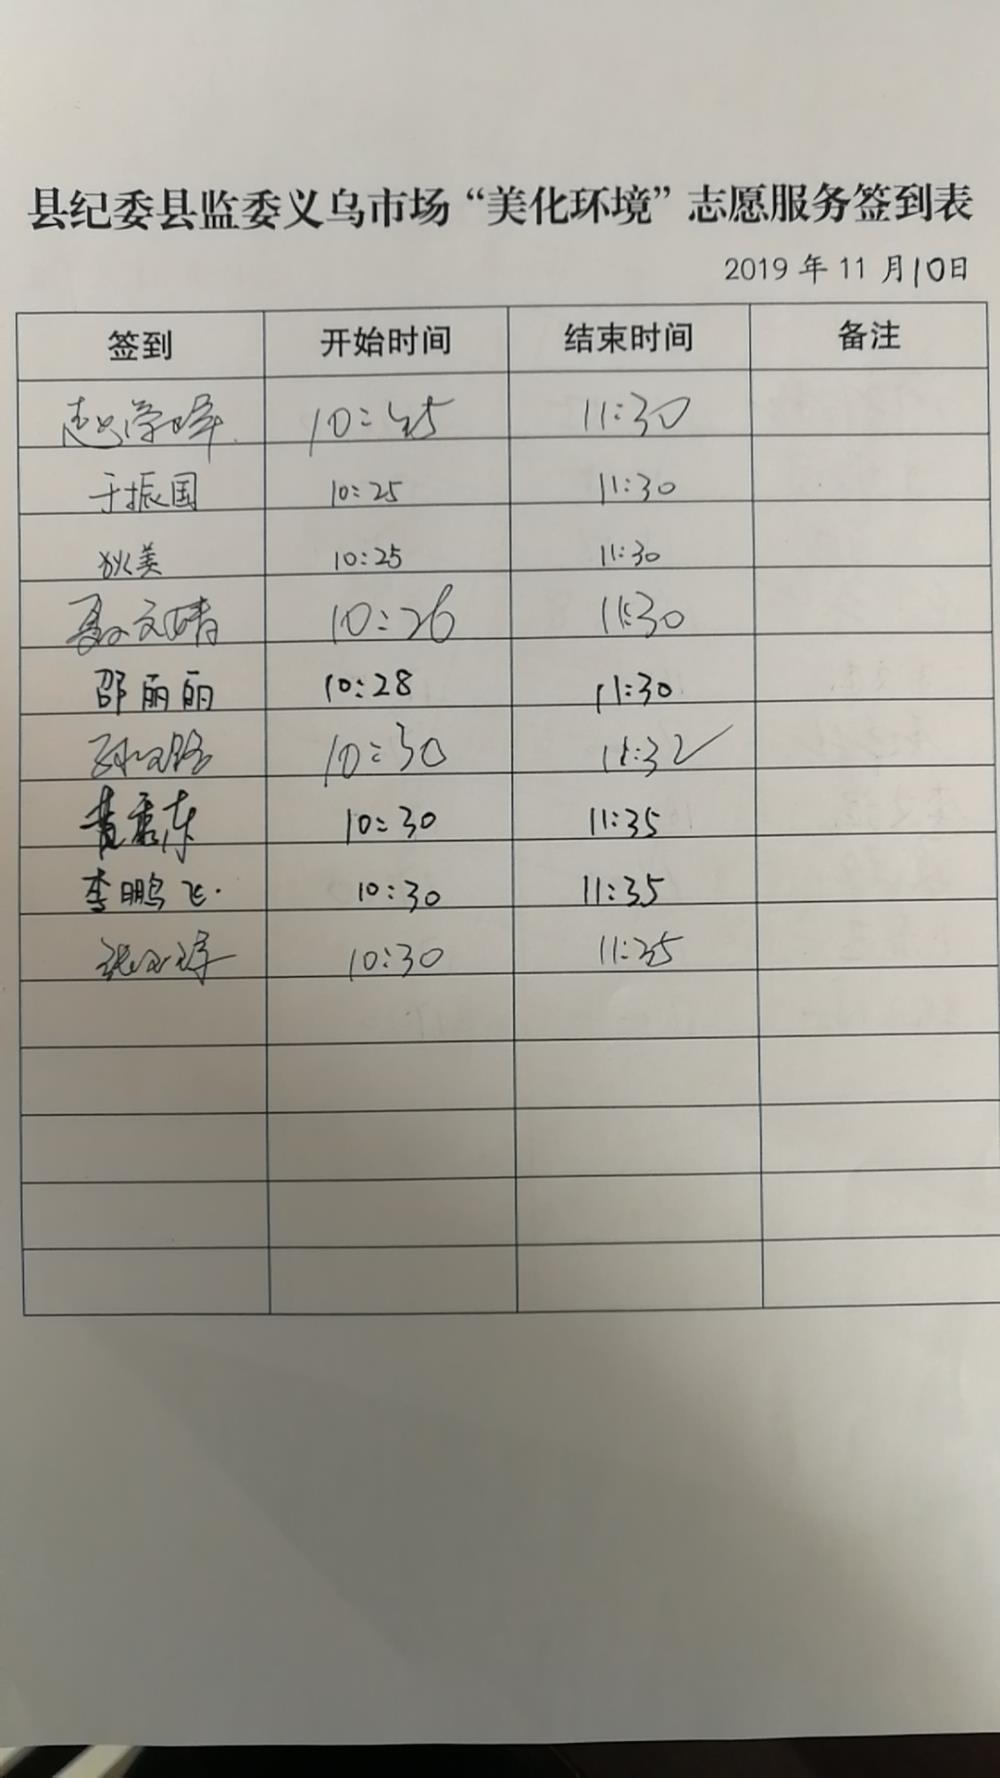 县纪委县监委义乌市场“美化环境”志愿服务签到表
2019 年 11 月10日
签到 开始时间 结束时间 备注
赵学峰 10:45 11:30
于振国 10:25 11:30
狄美 10:25 11:30
聂文婧 10:26 11:30
邵丽丽 10:28 11:30
孙 10:30 11:32
黄秀东 10:30 11:35
李鹏飞 10:30 11:35
张 10:30 11:35